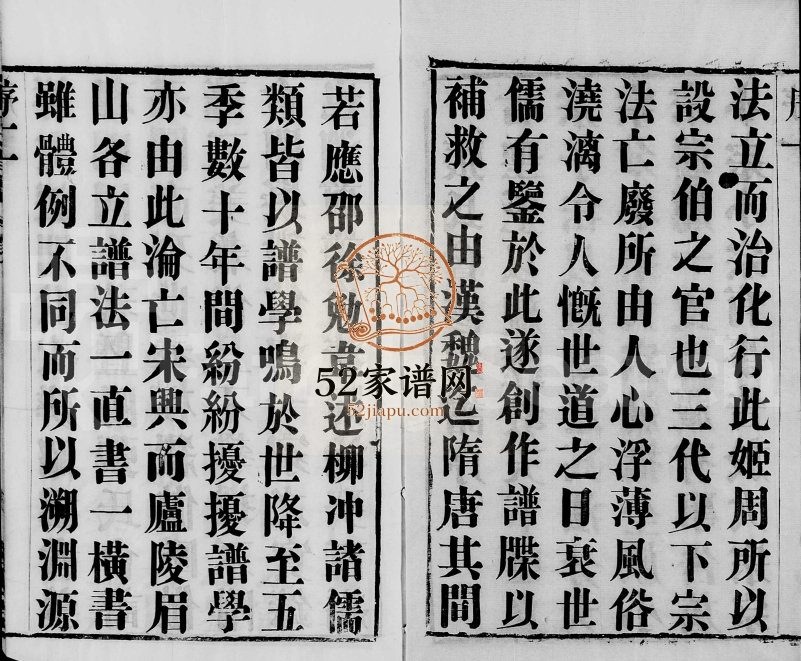 法立而治化行此姬周所以
設宗伯之官也三代以下宗
法亡廢所由人心浮薄風俗
澆漓令人慨世道之日衰世
儒有鑒於此遂創作譜牒以
補救之由漢魏迄隋唐其間
若應邵徐勉韋述柳冲諸儒
類皆以譜學鳴於世降至五
季數十年間紛紛擾擾譜學
亦由此淪亡宋興而廬陵眉
山各立譜法一直書一橫書
雖體例不同而所以溯淵源
52家谱网
52jiapu.com